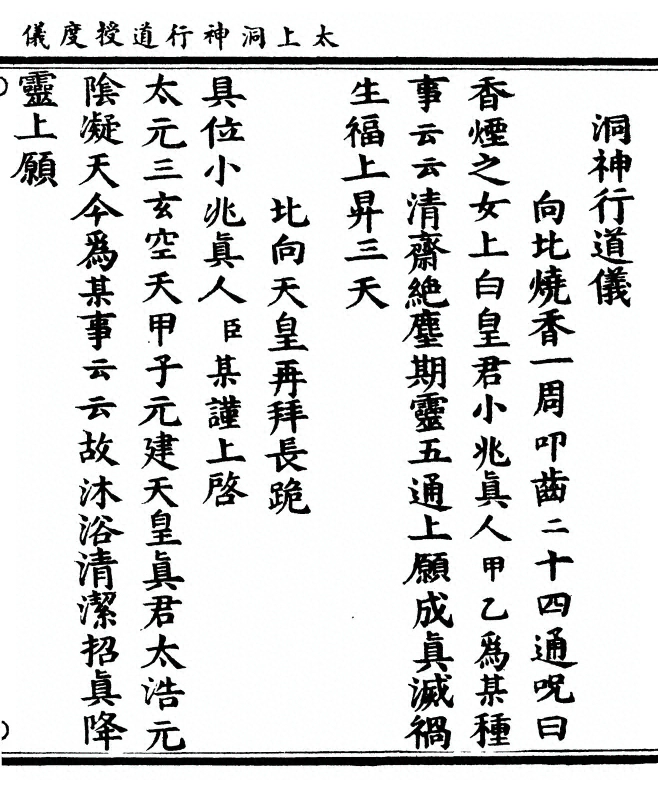 太上洞神行道授度儀
洞神行道儀
向北燒香一周叩齒二十四通呪曰
香煙之女上白皇君小兆眞人甲乙爲某種
事云云清齋絶塵期靈五通上願成眞滅禍
生福上昇三天
北向天皇再拜長跪
具位小兆眞人臣某謹上啓
太元三玄空天甲子元建天皇眞君太浩元
陰凝天今爲某事云云故沐浴清潔招眞降
靈上願